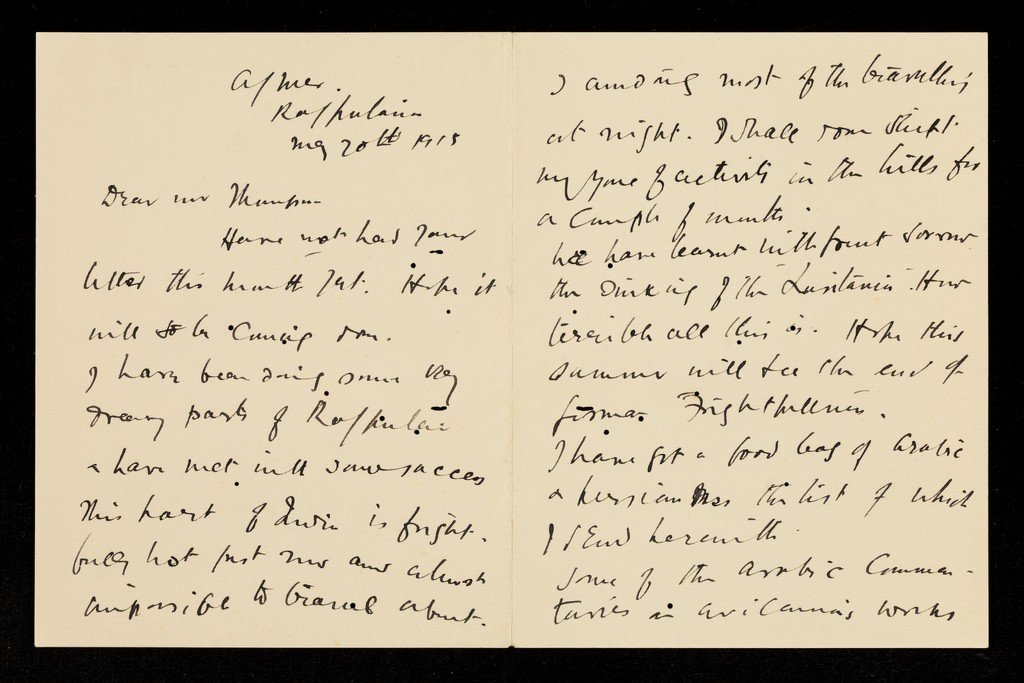 Ajmer.
Rajputana
May 20th 1915
Dear Mr Thompson
Have not had your
letter this month yet. Hope it
will be coming soon.
I have been doing some very
dreary parts of Rajputana
& have met with some success
This part of India is fright-
fully hot just now and almost
impossible to travel about.
I am doing most of the travelling
at night. I shall soon shift
my zone of activity in the hills for
a couple of months.
We have learnt with great sorrow
the sinking of the Lusitania. How
terrible all this is. Hope this
summer will see the end of
German Frightfullness.
I have got a good bag of Arabic
& Persian Mss the list of which
I send herewith.
Some of the Arabic Commen-
taries on Avicenna's works